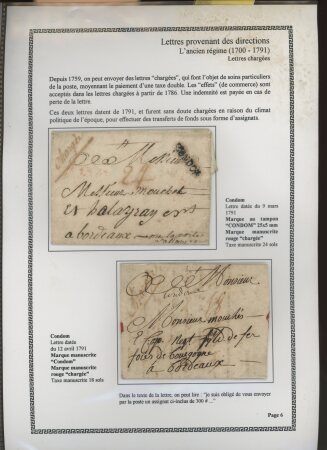 Lettres provenant des directions
L'ancien régime (1700 - 1791)
Lettres chargées
Depuis 1759, on peut envoyer des lettres "chargées", qui font l'objet de soins particuliers
de la poste, moyennant le paiement d'une taxe double. Les "effets" (de commerce) sont
acceptés dans les lettres chargées à partir de 1786. Une indemnité est payée en cas de
perte de la lettre.
Ces deux lettres datent de 1791, et furent sans doute chargées en raison du climat
politique de l'époque, pour effectuer des transferts de fonds sous forme d'assignats.
chargée
CONDOM
Monsieur
Monsieur mouchet
a bordeaux
Condom
Lettre datée du 9 mars
1791
Marque au tampon
"CONDOM" 25x5 mm
Marque manuscrite
rouge "chargée"
Taxe manuscrite 24 sols
Condom
Lettre datée
du 12 avril 1791
Marque manuscrite
"Condom"
Marque manuscrite
rouge "chargée"
Taxe manuscrite 18 sols
A Monsieur
Monsieur
de fer
a Bordeaux
Dans le texte de la lettre, on peut lire : "je suis obligé de vous envoyer
par la poste un assignat ci-inclus de 300 # ..."
Page 6